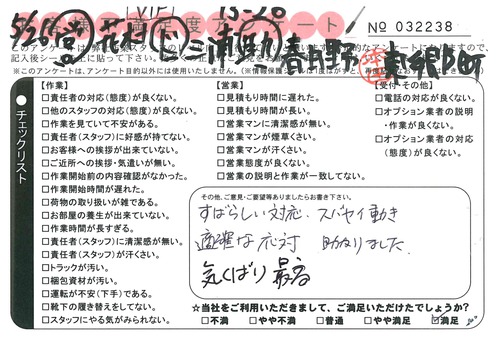 (VIP) 15-18
客様満足度アンケート
№ 032238
5/26 花村 春日野 東郷町
記入後シート上に貼って下さい。
※このアンケートは、アンケート目的以外には使用いたしません。
チェックリスト
【作業】
□責任者の対応(態度)が良くない。
□他のスタッフの対応(態度)が良くない。
□作業を見ていて不安がある。
□責任者(スタッフ)に好感が持てない。
□お客様への挨拶が出来ていない。
□ご近所への挨拶・気遣いが無い。
□作業開始前の内容確認がなかった。
□作業開始時間が遅れた。
□荷物の取り扱いが雑である。
□お部屋の養生が出来ていない。
□作業時間が長すぎる。
□責任者(スタッフ)に清潔感が無い。
□責任者(スタッフ)が汗くさい。
□トラックが汚い。
□梱包資材が汚い。
□運転が不安(下手)である。
□靴下の履き替えをしてない。
□スタッフにやる気がみられない。
【営業】
□見積もり時間に遅れた。
□見積もり時間が長い。
□営業マンに清潔感が無い。
□営業マンが煙草くさい。
□営業マンが汗くさい。
□営業態度が良くない。
□営業の説明と作業が違った。
【受付・その他】
□電話の対応が良くない。
□オプション業者の説明
・作業が良くない。
□オプション業者の対応
(態度)が良くない。
その他、ご意見・ご要望等ありましたらお書き下さい。
すばらしい対応. スバヤイ動き
適確な応対 助かりました.
気くばり 最高
☆当社をご利用いただきまして、ご満足いただけたでしょうか?
□不満 □やや不満 □普通 □やや満足 ☑満足